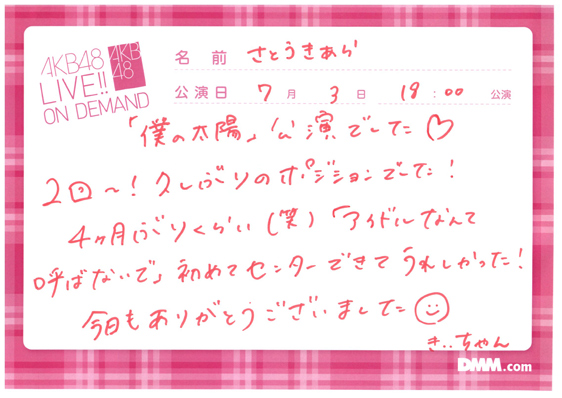 AKB48
LIVE!!
ON DEMAND
AKB
48
名 前 さとうきあら
公演日 7月 3日 18:00 公演
「僕の太陽」公演でした♡
2回〜!久しぶりのポジションでした!
4ヶ月ぶりくらい(笑)「アイドルなんて
呼ばないで」初めてセンターできてうれしかった!
今日もありがとうございました☺
き..ちゃん
DMM.com